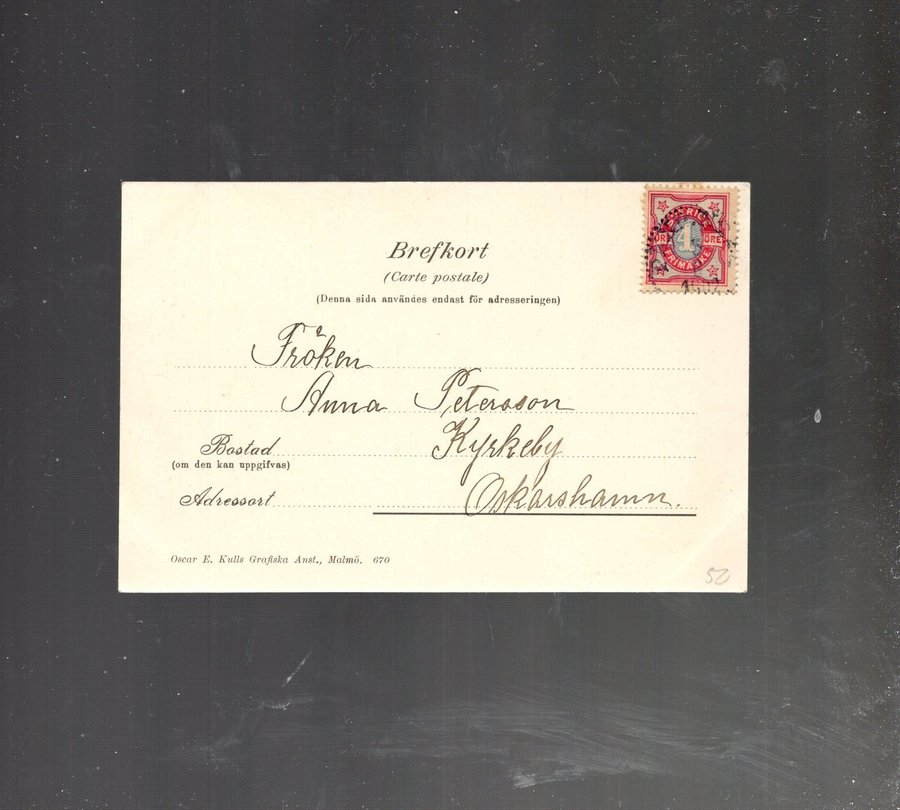 Brefkort
(Carte postale)
(Denna sida användes endast för adresseringen)
SVERIGE
ÖRE 4 ÖRE
FRIMÄRKE
Fröken
Anna Petersson
Bostad Kyrkeby
(om den kan uppgifvas)
Adressort Oskarshamn.
Oscar E. Kulls Grafiska Anst., Malmö. 670
50